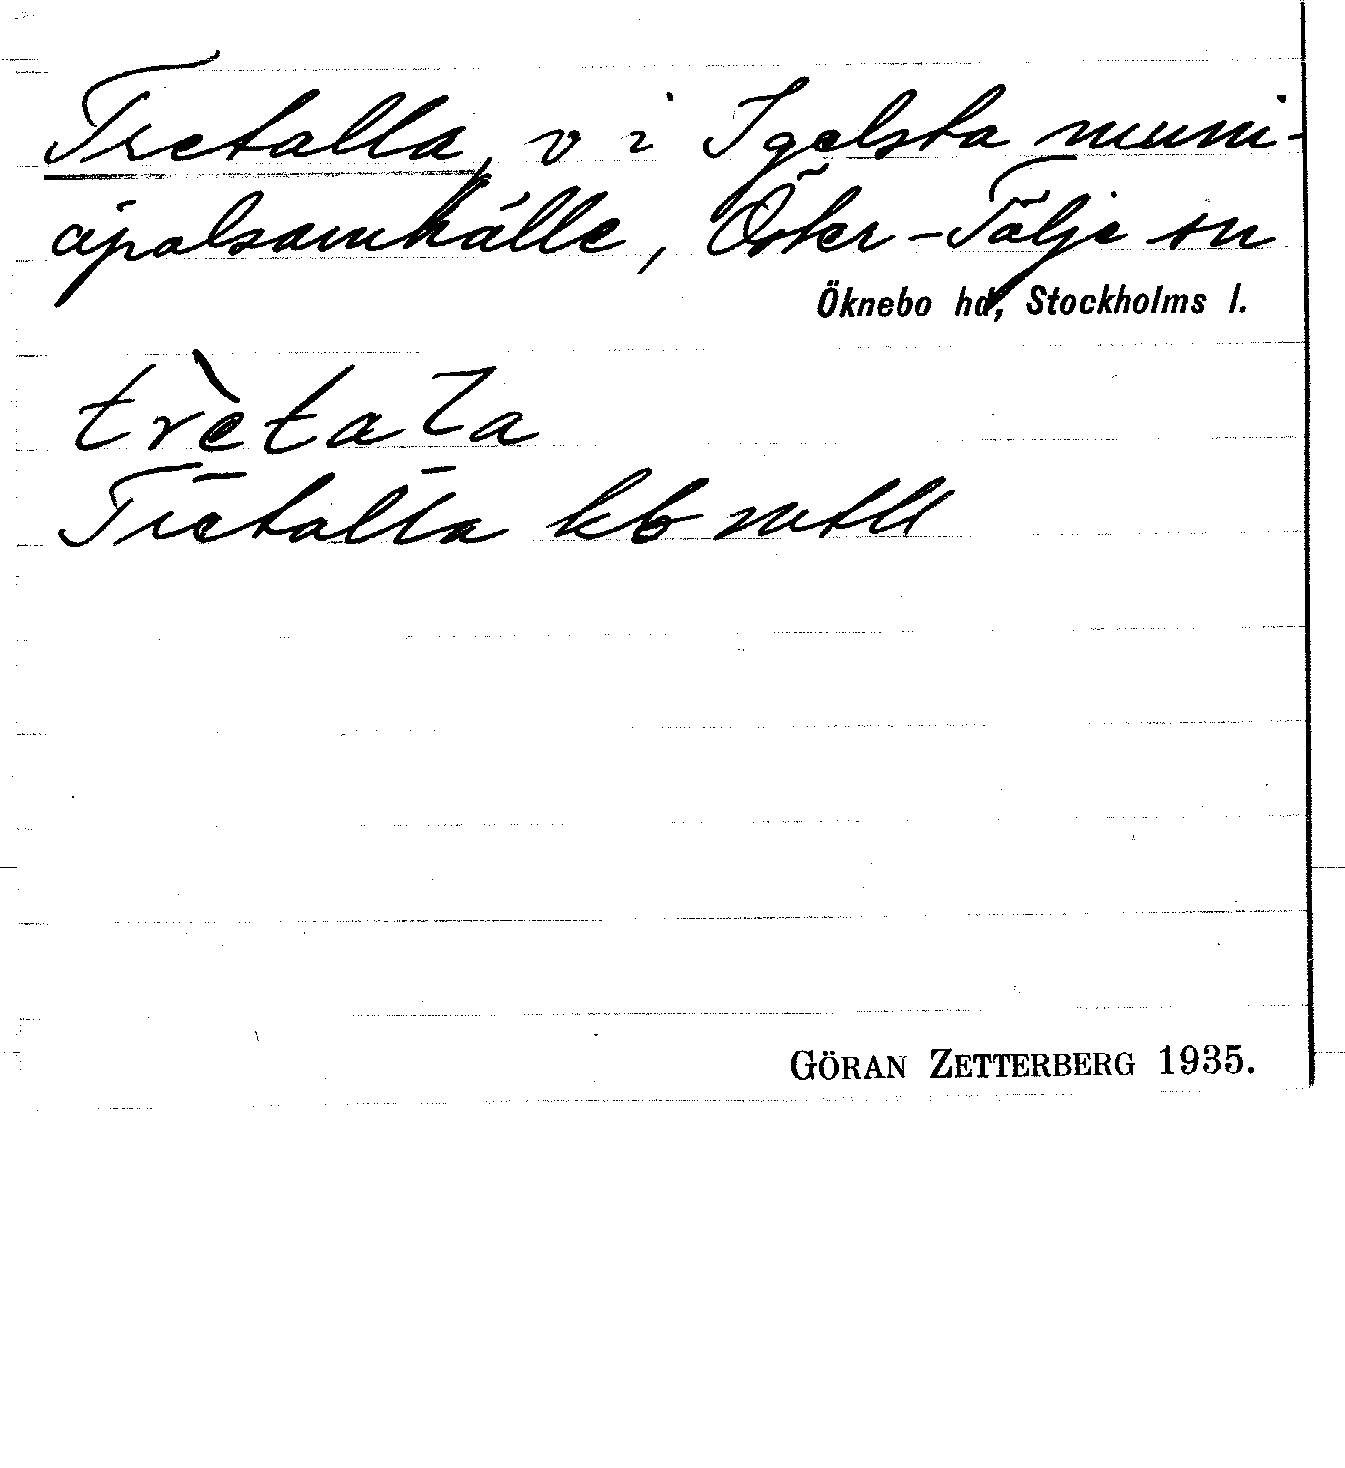 Tretalla, v i Igelsta muni-
cipalsamhälle, Öster-Tälje sn
Öknebo hd, Stockholms l.
trètala
Tretalla kb mtll
GÖRAN ZETTERBERG 1935.